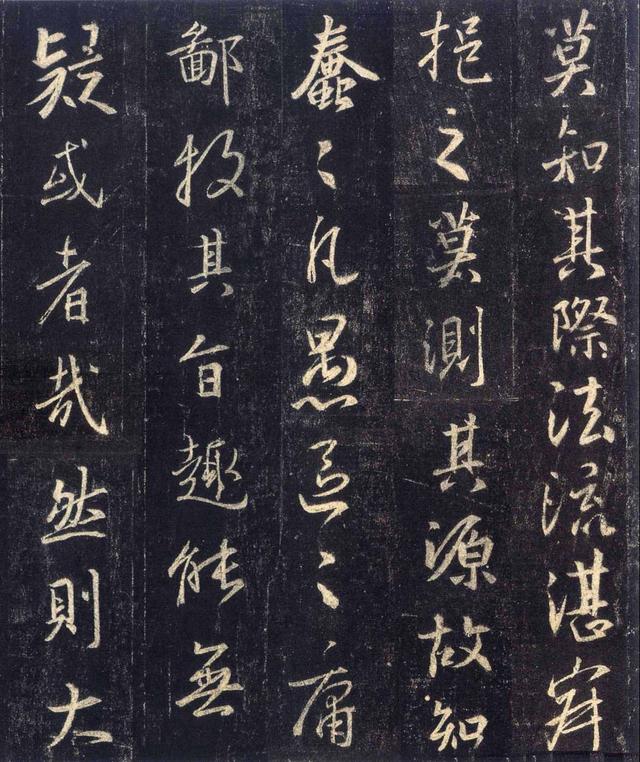 莫知其際法流湛寂
挹之莫測其源故知
蠢〻凡愚區〻庸
鄙投其旨趣能無
疑或者哉然則大